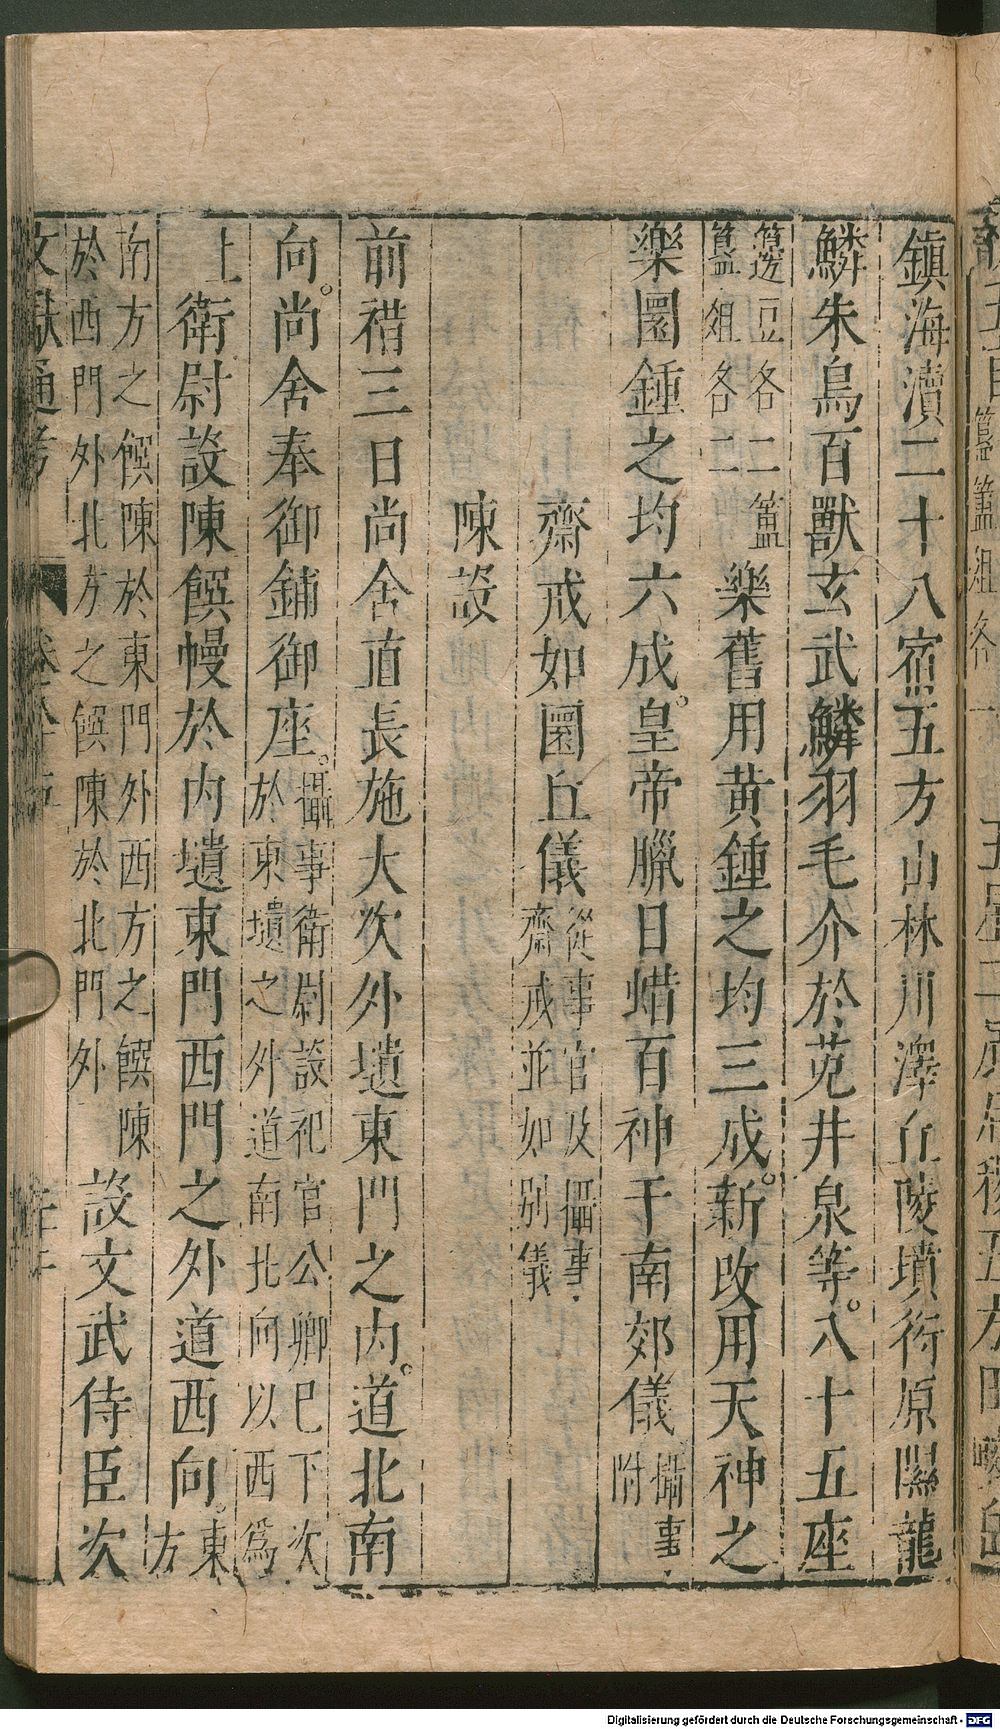 鎮海瀆二十八宿五方山林川澤丘陵墳衍原隰龍
鱗朱鳥百獸玄武鱗羽毛介於苑井泉等。八十五座
籩豆各二簠
簋俎各二
樂舊用黃鍾之均三成。新改用天神之
樂圜鍾之均六成。皇帝臘日蜡百神于南郊儀
攝事
附
齋戒如圜丘儀
從事官及攝事
齋戒並如別儀
陳設
前䄍三日尚舍直長施大次外壝東門之內。道北南
向。尚舍奉御鋪御座。
攝事衛尉設祀官公卿巳下次
於東壝之外道南北向以西為
上
衛尉設陳饌幔於內壝東門西門之外道西向。
東
方
南方之饌陳於東門外西方之饌陳
於西門外北方之饌陳於北門外
設文武侍臣次
文獻通考
Digitalisierung gefördert durch die Deutsche Forschungsgemeinschaft - DFG